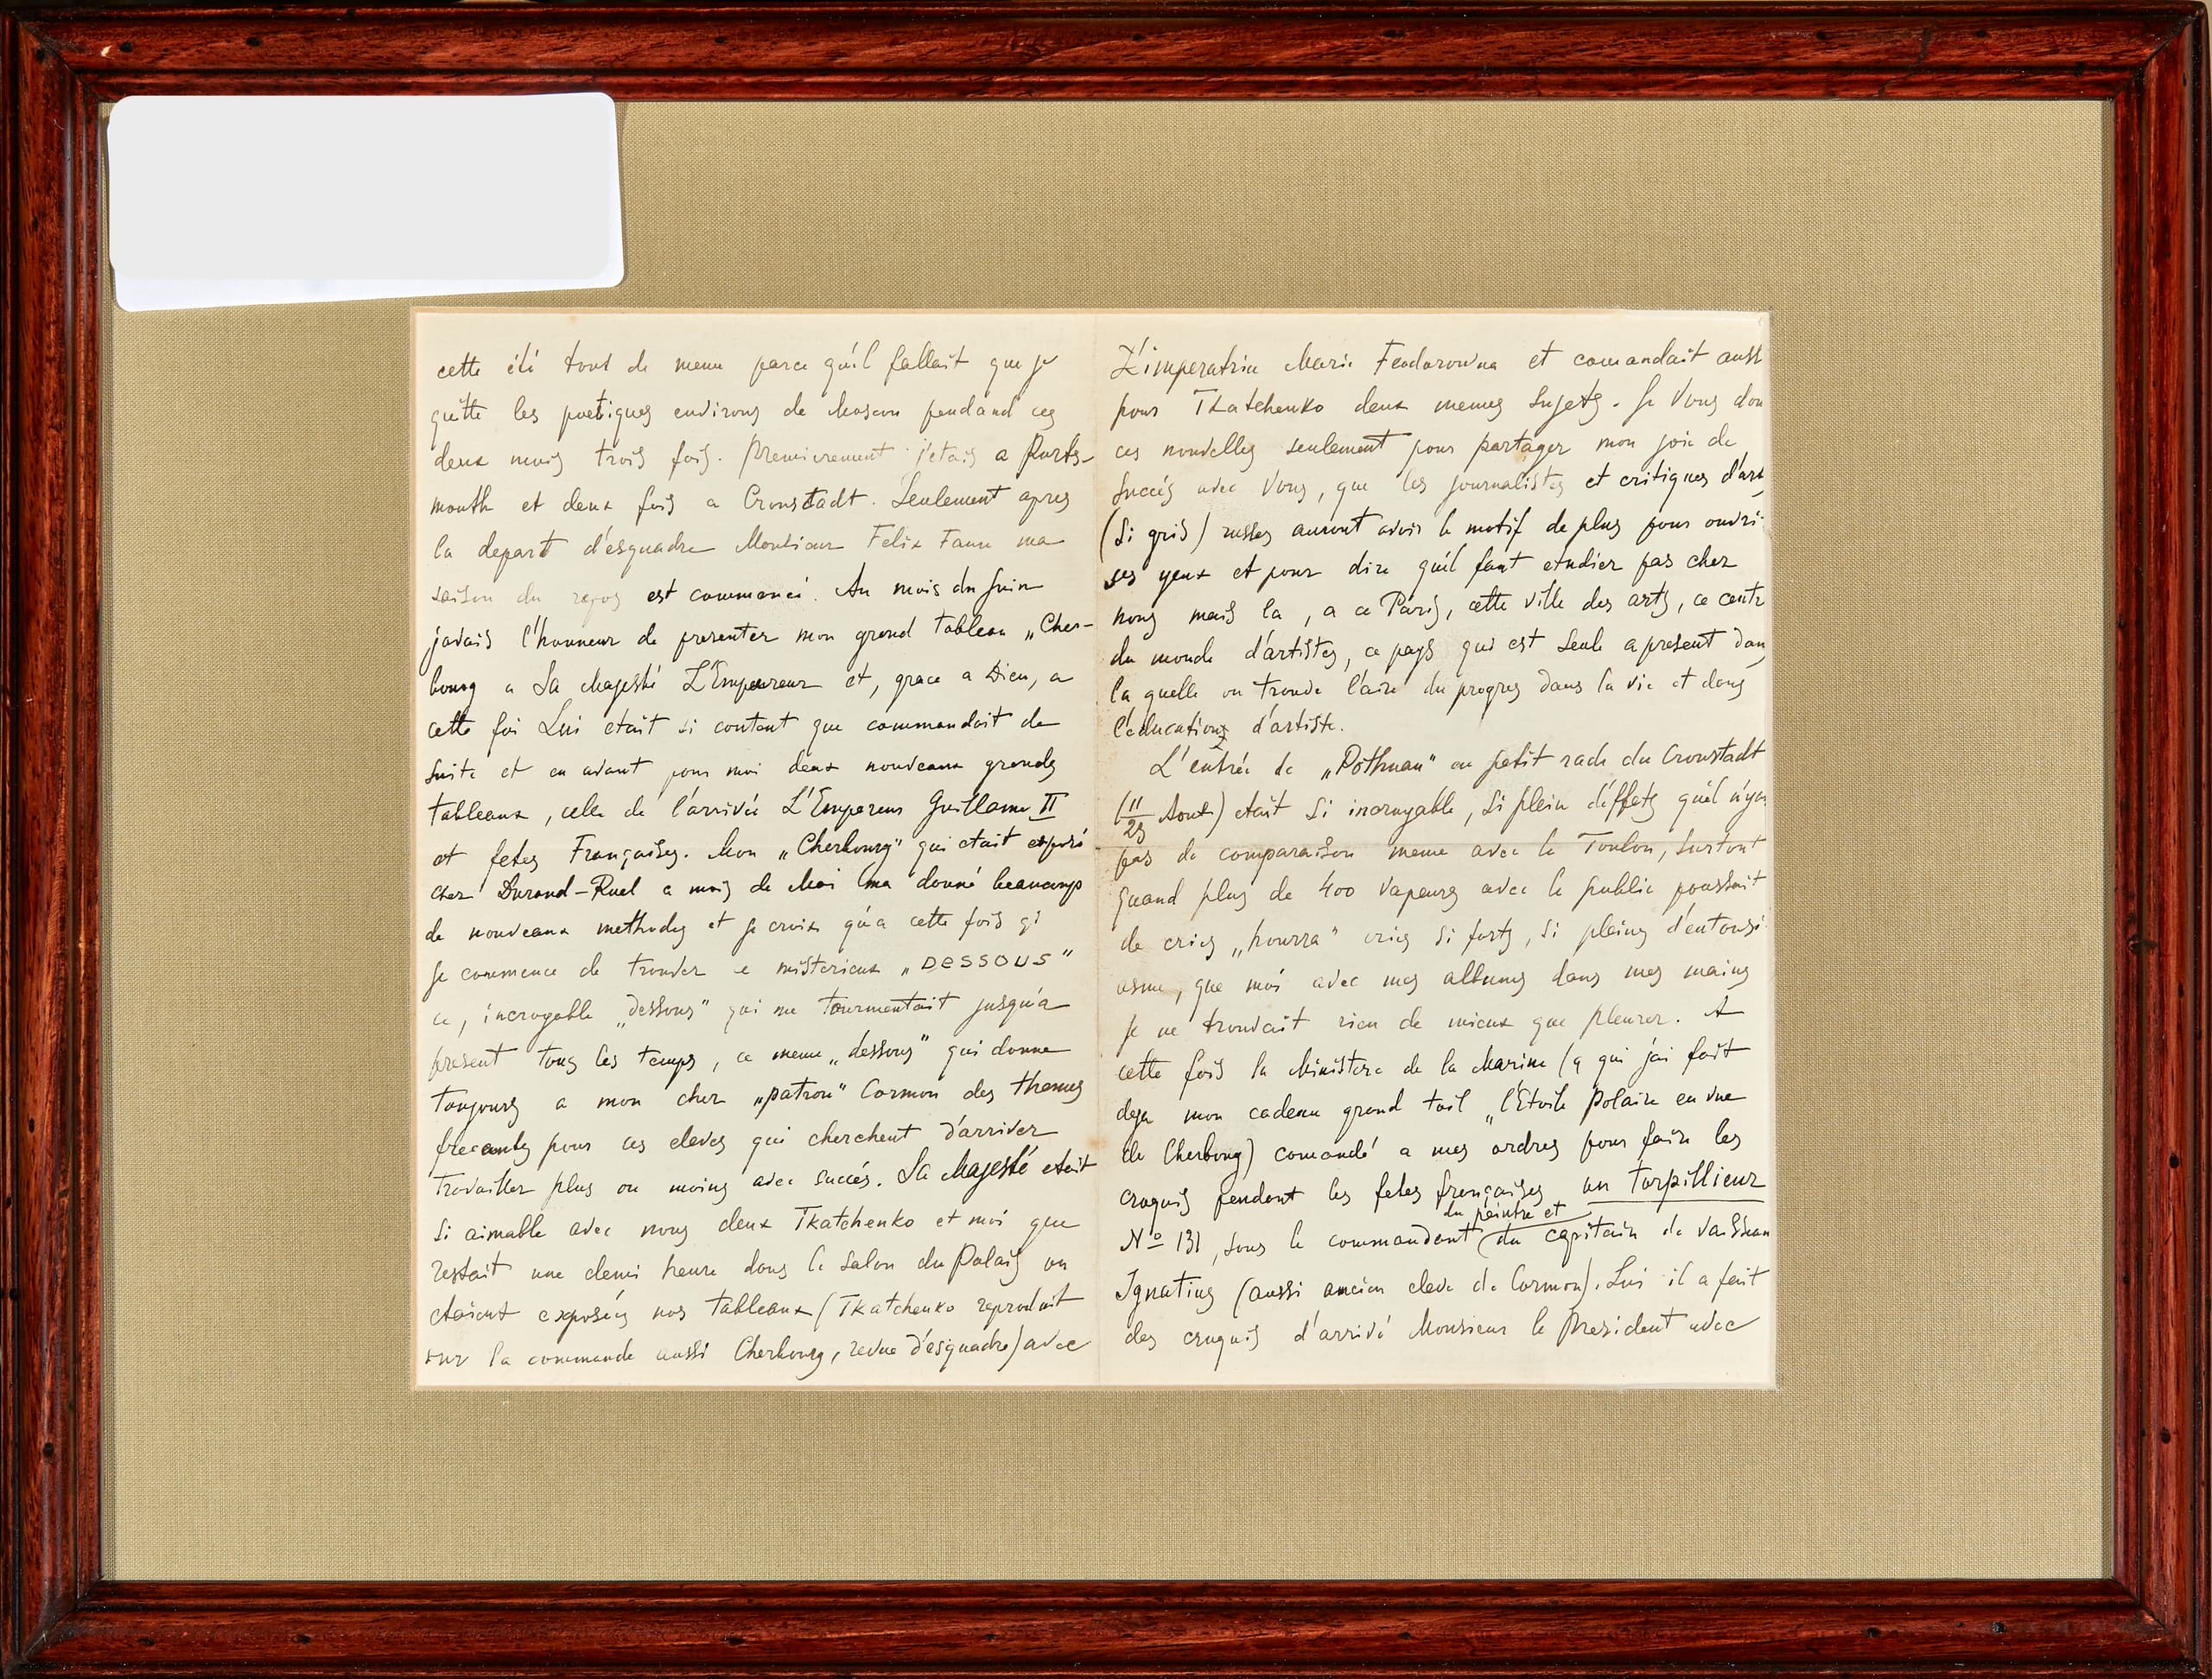 cette été tout de meme parce qu'il fallait que je
quitte les poetiques environs de Moscou pendand ces
deux mois trois fois. Premierement j'etais a Ports-
mouth et deux fois a Cronstadt. Seulement apres
la depart d'esquadre Monsieur Felix Faure ma
saison du repos est commencé. Au mois du Juin
j'avais l'honneur de presenter mon grand tableau „Cher-
bourg a Sa Majesté L'Empereur et, grace a Dieu, a
cette foi Lui etait si content que commandait de
suite et en avant pour moi deux nouveaux grands
tableaux, celle de l'arrivée L'Empereur Guillaume II
et fetes Françaises. Mon „Cherbourg" qui etait exposé
chez Durand-Ruel a mois de Mai ma donné beaucoup
de nouveaux methodes et je crois qu'a cette fois
je commence de trouver le misterieux „DESSOUS"
ce, incroyable „dessous" qui me tourmentait jusqu'a
present tous les temps, ce meme „dessous" qui donne
toujours a mon cher „patron" Cormon des themes
frecents pour ces eleves qui cherchent d'arriver
travailler plus ou moins avec succés. Sa Majesté etait
si aimable avec nous deux Tkatchenko et moi que
restait une demi heure dans le salon du Palais ou
etaient exposées nos tableaux (Tkatchenko reproduit
sur la commande aussi Cherbourg, revue d'esquadre) avec
L'imperatrice Marie Feodorowna et comandait auss
pour Tkatchenko deux memes sujets. Je Vous don
ces nouvelles seulement pour partager mon joie de
succés avec Vous, que les journalistes et critiques d'art
(si gris) russes auront avoir le motif de plus pour ouvri
ses yeux et pour dire qu'il faut etudier pas chez
nous mais la, a ce Paris, cette ville des arts, ce centre
du monde d'artistes, ce pays qui est seule a present dans
la quelle on trouve l'aire du progres dans la vie et dans
l'education d'artiste.
L'entrée de „Pothuau" en petit rade du Cronstadt
(11/23 Aout) etait si incroyable, si plein d'éffets qu'il n'ya
pas de comparaison meme avec le Toulon, surtout
quand plus de 400 vapeurs avec le public poussait
de cries „hourra" cries si forts, si pleins d'entousi-
asme, que moi avec mes albums dans mes mains
je ne trouvait rien de mieux que pleurer. A
cette fois la Ministere de la Marine (a qui j'ai fait
deja mon cadeau grand toil „l'Etoile Polaire en vue
de Cherbourg) comandé a mes ordres pour faire les
croquis pendant les fetes françaises un torpillieur
du peintre et
No 131, sous le commandant du capitain de vaisseau
Ignatius (aussi ancien eleve de Cormon). Lui il a fait
des croquis d'arrivé Monsieur le President avec